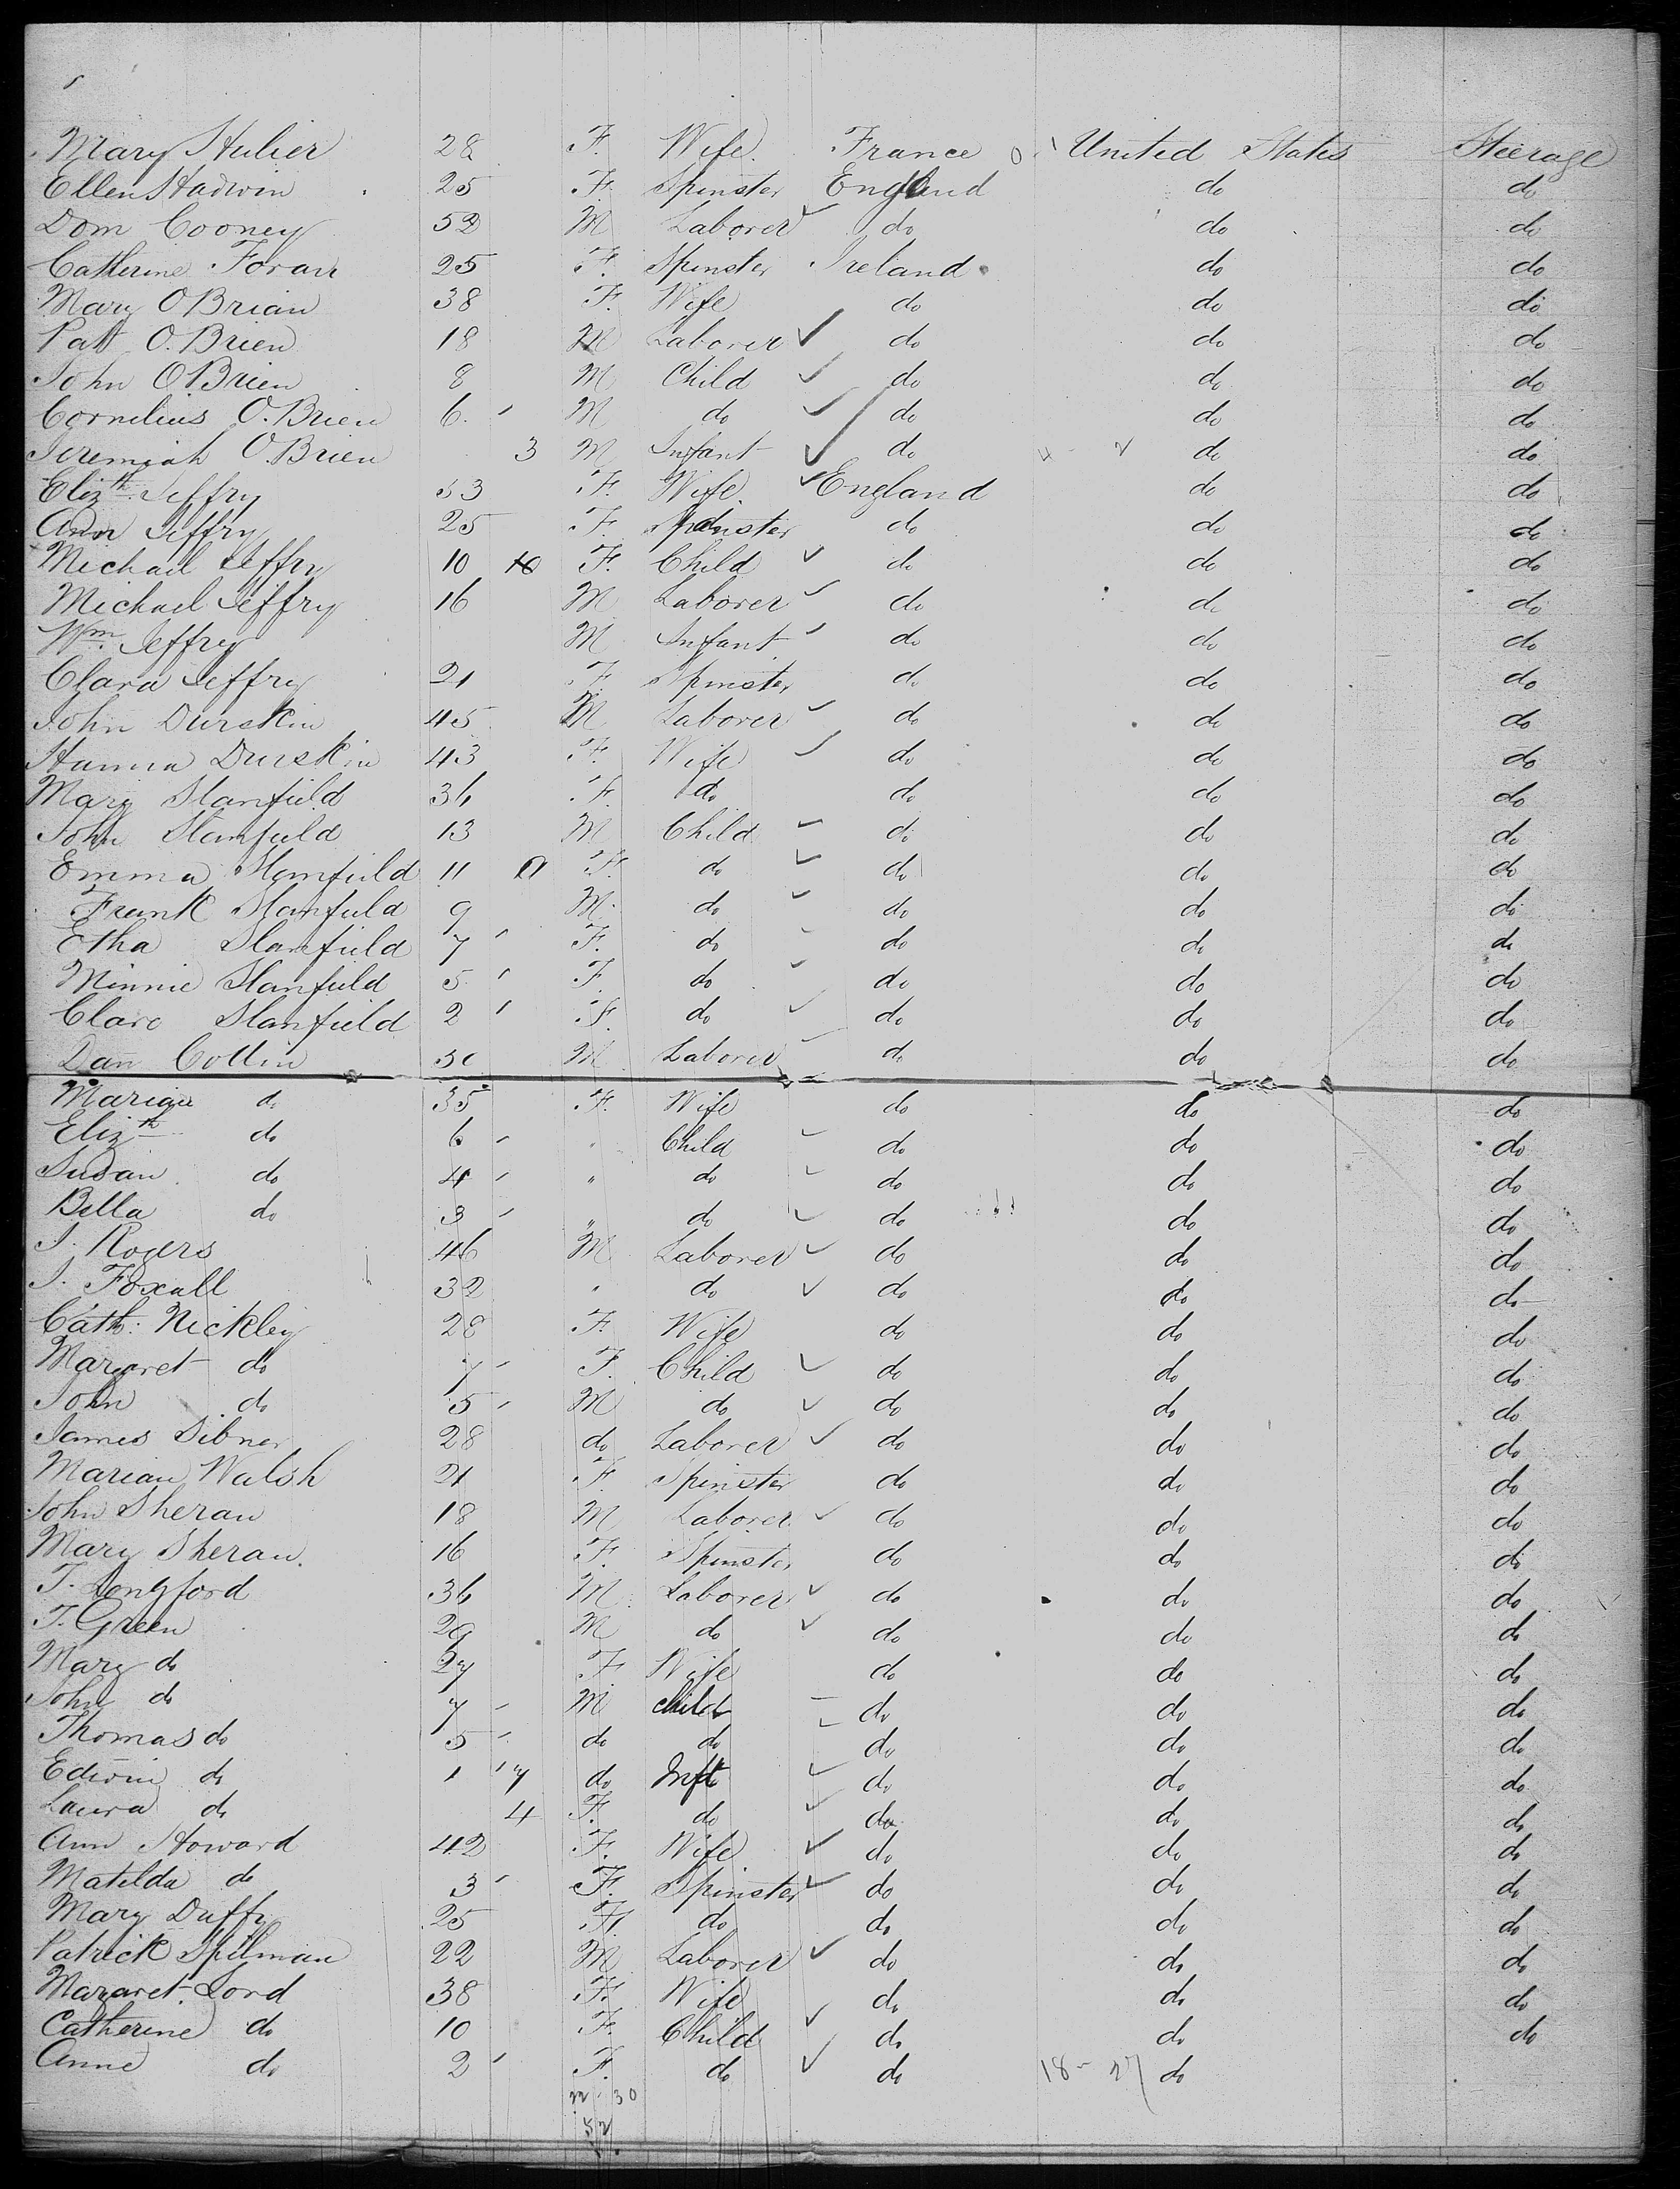 Mary Hulier 28 F. Wife. France United States Steerage
Ellen Hadwin 25 F. Spinster England do do
Dom Cooney 52 M Laborer do do do
Catherine Foran 25 F. Spinster Ireland do do
Mary OBrian 38 F. Wife do do do
Patt O.Brien 18 M Laborer do do do
John OBrien 8 M Child do do do
Cornelius O.Brien 6. M do do do do
Jeremiah O.Brien 3 M Infant do do do
Elizth Jeffry 53 F. Wife. England do do
Ann Jeffry 25 F. Spinster do do do
Michael Jeffry 10 F. Child do do do
Michael Jeffry 16 M Laborer do do do
Wm. Jeffry M Infant do do do
Clara Jeffry 21 F. Spinster do do do
John Durskin 45 M Laborer do do do
Hanna Durskin 43 F. Wife do do do
Mary Stanfield 36 F. do do do do
John Stanfield 13 M Child do do do
Emma Stanfield 11 F. do do do do
Frank Stanfield 9 M do do do do
Etha Stanfield 7 F. do do do do
Minnie Stanfield 5 F. do do do do
Clara Stanfield 2 F. do do do do
Dan Collin 30 M Laborer do do do
Marian do 35 F. Wife do do do
Elizth do 6 " Child do do do
Susan do 4 " do do do do
Bella do 3 " do do do do
J. Rogers 46 M Laborer do do do
J. Foxall 32 " do do do do
Cath: Nickley 28 F. Wife do do do
Margaret do 7 F. Child do do do
John do 5 M do do do do
James Sibner 28 do Laborer do do do
Marian Walsh 21 F. Spinster do do do
John Sheran 18 M Laborer do do do
Mary Sheran. 16 F. Spinster do do do
T. Longford 36 M Laborer do do do
T. Green 29 M do do do do
Mary do 27 F. Wife do do do
John do 7 M child do do do
Thomas do 5 do do do do do
Edwin do 1 7 do Inft do do do
Laura do 4 F. do do do do
Ann Howard 42 F. Wife do do do
Matilda do 3 F. Spinster do do do
Mary Duffy 25 F. do do do do
Patrick Spilman 22 M Laborer do do do
Margaret Lord 38 F. Wife do do do
Catherine do 10 F. Child do do do
Anne do 2 F. do do 18 - 27 do
22 30
52